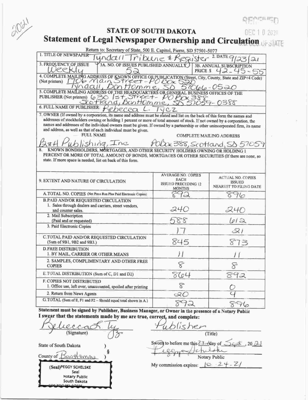 2021
RECEIVED
STATE OF SOUTH DAKOTA
Statement of Legal Newspaper Ownership and Circulation
Return to: Secretary of State, 500 E. Capitol, Pierre, SD 57501-5077
1. TITLE OF NEWSPAPER Tyndall Tribune & Register 2. DATE 9/23/21
3. FREQUENCY OF ISSUE Weekly 3A. NO. OF ISSUES PUBLISHED ANNUALLY 52 3B. ANNUAL SUBSCRIPTION PRICE $ 42-45-55
4. COMPLETE MAILING ADDRESS OF KNOWN OFFICE OF PUBLICATION (Street, City, County, State and ZIP+4 Code) (Not printers)
Tyndall, Bon Homme, SD 57066-0520
5. COMPLETE MAILING ADDRESS OF THE HEADQUARTERS OF GENERAL BUSINESS OFFICES OF THE PUBLISHER
Scotland, Bon Homme, SD 57059-0388
6. FULL NAME OF PUBLISHER: Rebecca L. Tycz
7. OWNER (If owned by a corporation, its name and address must be stated and also on the back of this form the names and addresses of stockholders owning or holding 1 percent or more of total amount of stock. If not owned by a corporation, the names and addresses of the individual owners must be given. If owned by a partnership or other unincorporated firm, its name and address, as well as that of each individual must be given.
FULL NAME COMPLETE MAILING ADDRESS
Publishing, Inc. PO Box 388, Scotland, SD 57059
8. KNOWN BONDHOLDERS, MORTGAGEES, AND OTHER SECURITY HOLDERS OWNING OR HOLDING 1 PERCENT OR MORE OF TOTAL AMOUNT OF BONDS, MORTGAGES OR OTHER SECURITIES (If there are none, so state. If more space is needed, list on back of this form.
9. EXTENT AND NATURE OF CIRCULATION AVERAGE NO. COPIES EACH ISSUE DURING PRECEDING 12 MONTHS ACTUAL NO. COPIES ISSUED NEAREST TO FILING DATE
A. TOTAL NO. COPIES (Net Press Run Plus Paid Electronic Copies) 892 896
B. PAID AND/OR REQUESTED CIRCULATION
1. Sales through dealers and carriers, street vendors, and counter sales 240 240
2. Mail Subscription (Paid and or requested) 588 612
3. Paid Electronic Copies 17 21
C. TOTAL PAID AND/OR REQUESTED CIRCULATION (Sum of 9B1, 9B2 and 9B3) 845 873
D. FREE DISTRIBUTION
1. BY MAIL, CARRIER OR OTHER MEANS 11 11
2. SAMPLES, COMPLIMENTARY AND OTHER FREE COPIES 8 8
E. TOTAL DISTRIBUTION (Sum of C, D1 and D2) 864 892
F. COPIES NOT DISTRIBUTED
1. Office use, left over, unaccounted, spoiled after printing 8 0
2. Return from News Agents 20 4
G. TOTAL (Sum of E, F1 and F2 - Should equal total shown in A) 892 896
Statement must be signed by Publisher, Business Manager, or Owner in the presence of a Notary Public
I swear that the statements made by me are true, correct, and complete:
Rebecca L Tycz Publisher
(Signature) (Title)
State of South Dakota ) Sworn to before me this 23 day of Sept, 2021
County of Bon Homme ) Peggy Schelske
Notary Public
(Seal) My commission expires: 10-24-21
PEGGY SCHELSKE
Seal
Notary Public
South Dakota